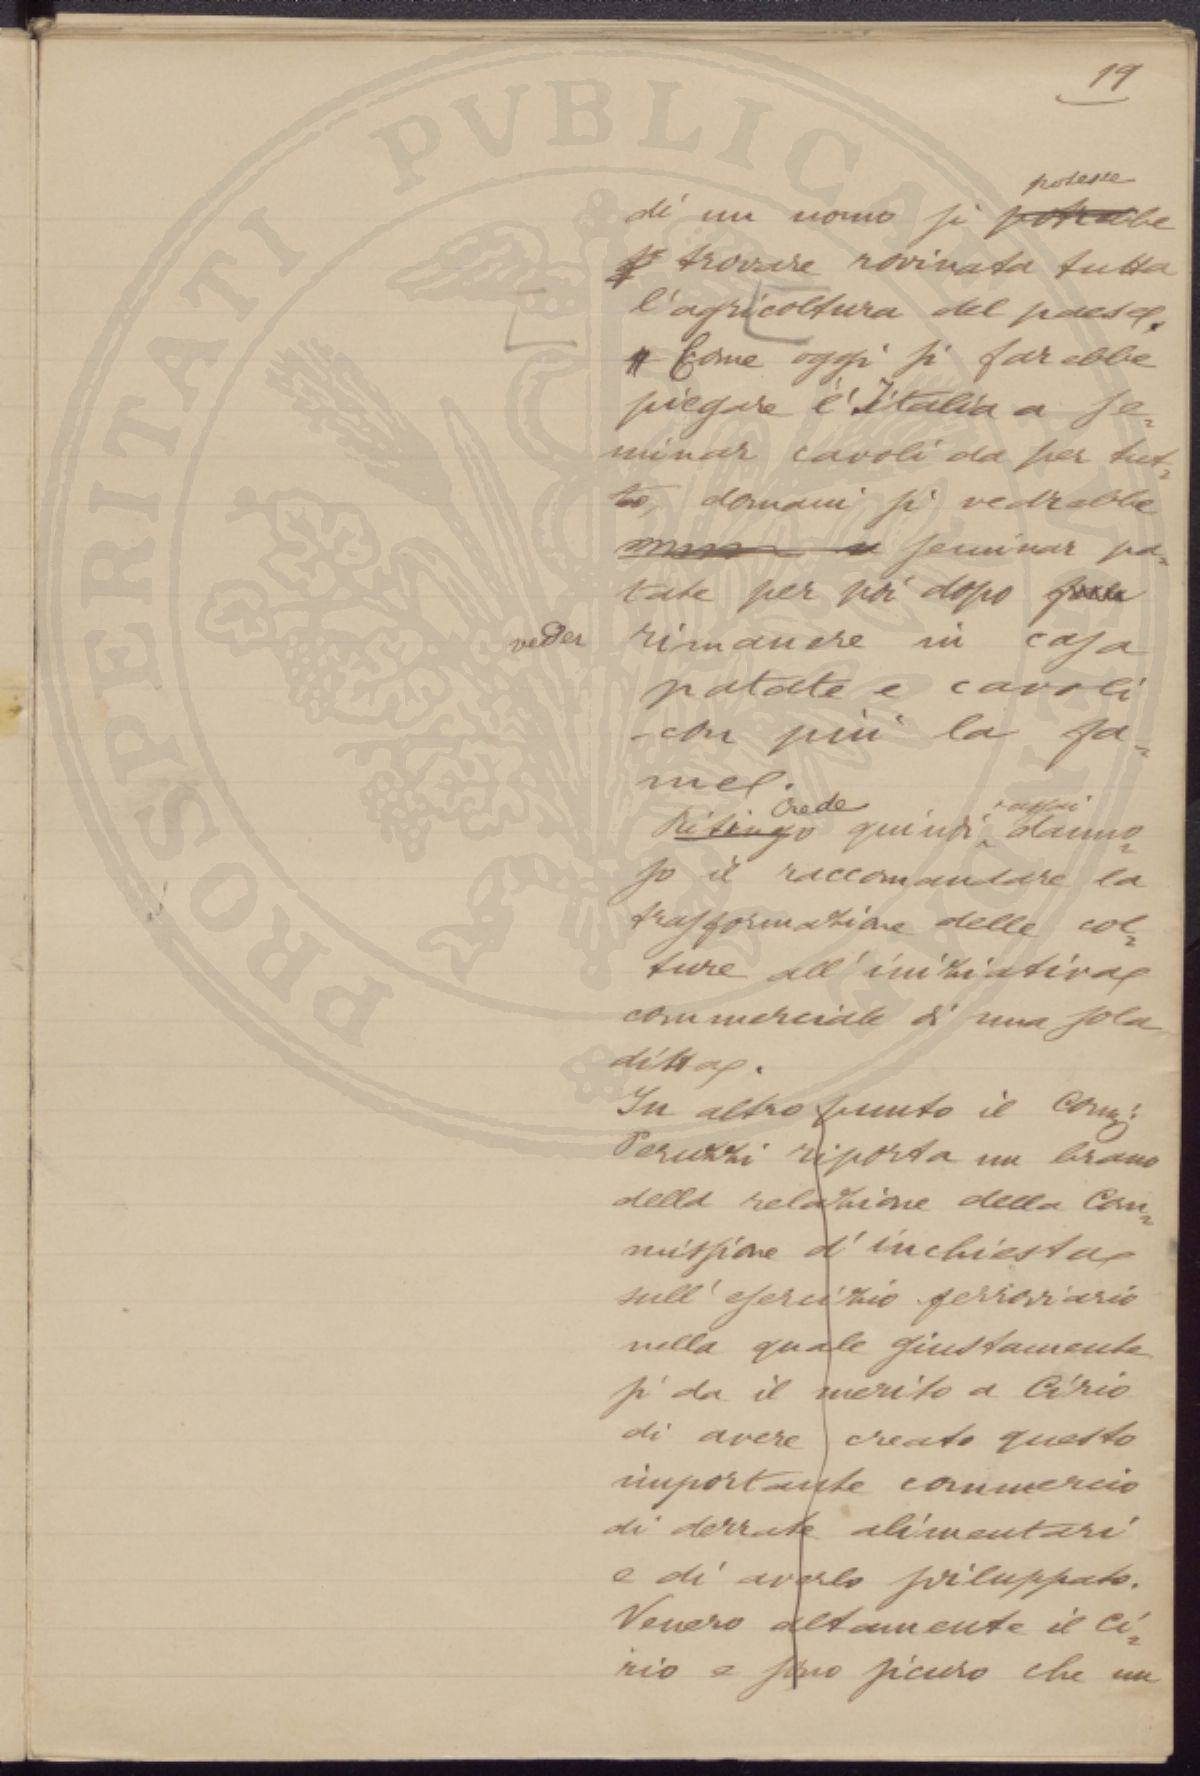 19
potesse
di un uomo si potrebbe
trovare rovinata tutta
l'agricoltura del paese.
Come oggi si farebbe
piegare l'Italia a se=
minar cavoli da per tut=
to, domani si vedrebbe
seminar pa=
tate per poi dopo
veder rimanere in casa
patate e cavoli
con più la fa=
me.
Crede assai
Ritengo quindi danno=
so il raccomandare la
trasformazione delle col=
ture all'iniziativa
commerciale di una sola
ditta.
In altro punto il Com:
Peruzzi riporta un brano
della relazione della Com=
missione d'inchiesta
sull'esercizio ferroviario
nella quale giustamente
si da il merito a Cirio
di avere creato questo
importante commercio
di derrate alimentari
e di averlo sviluppato.
Venero altamente il Ci=
rio e sono sicuro che un
PROSPERITATI PVBLICAE